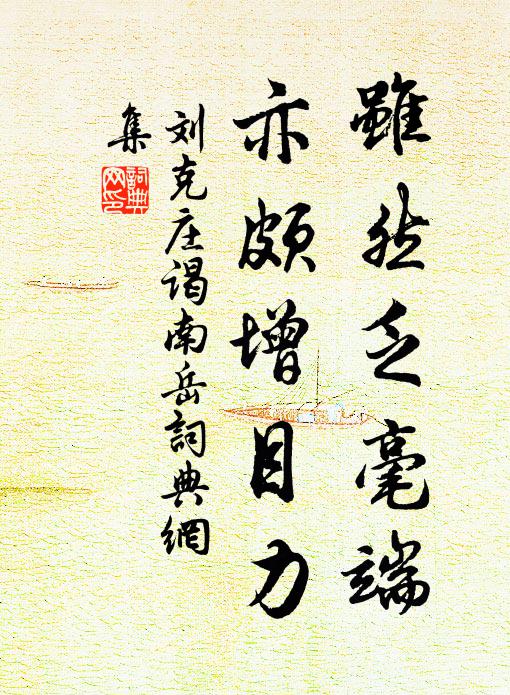 雖然乏毫端
亦頗增目力
刘克庄谒南岳詞典網
集
詞典
网印